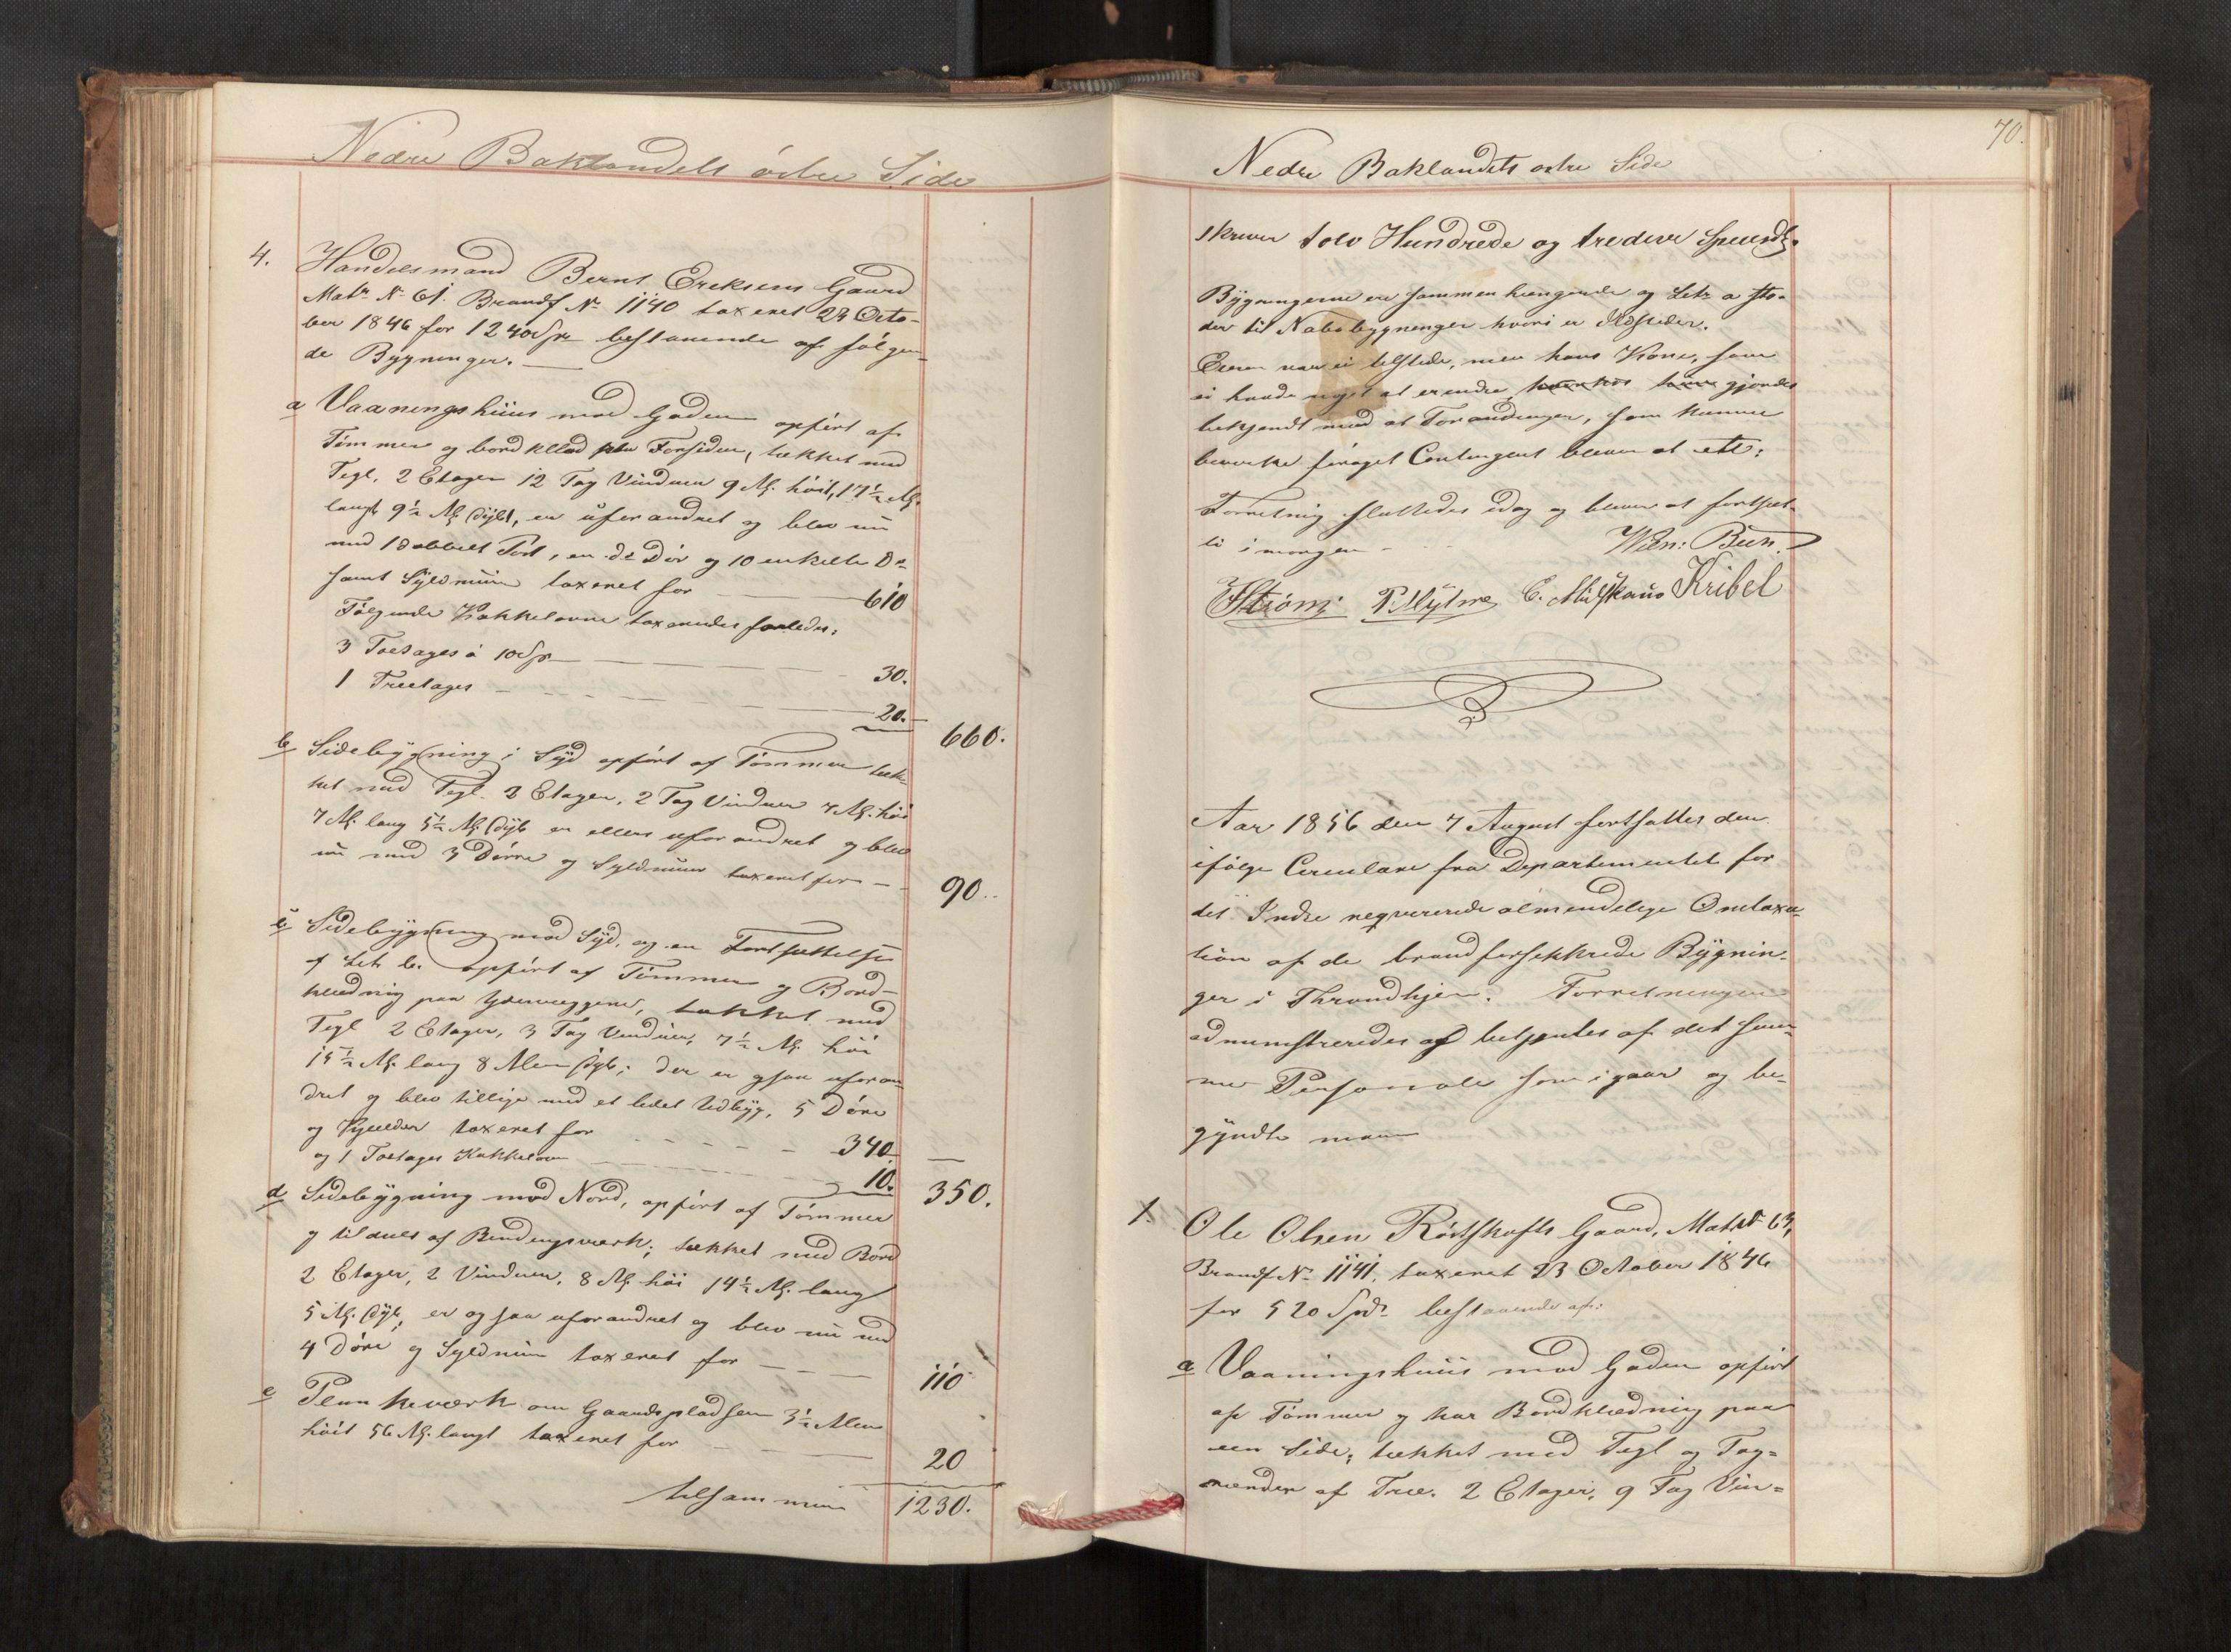 Nedre Baklandets östre Side
4. Handelsmand Bernt Ereksens Gaard
Matr No 61. Brandf No 1140 taxeret 23 Octo-
ber 1846 for 1240 Spd bestaaende af følgen-
de Bygninger.
a Vaaningshuus mod Gaden opført af
Tømmer og bordklæd paa Forsiden, tækket med
Tegl, 2 Etager 12 Fag Vinduer 9 Al. höit, 17½ Al.
langt 9½ Al. dybt, er uforandret og blev nu
med 1 dobbelt Port, en do Dör og 10 enkelte Do
samt Syldmuur taxeret for 610
Følgende Kakkelovne taxeredes saaledes:
3 Toetages à 10 Spd 30.
1 Treetages 20. 660.
b Sidebygning i Syd opført af Tømmer tæk-
ket med Tegl. 2 Etager, 2 Fag Vinduer 7 Al. höi
7 Al. lang 5½ Al. dyb er ellers uforandret og blev
nu med 3 Dörre og Syldmuur taxeret for 90.
c Sidebygning mod Syd, og en Fortsættelse
af Litr b. opført af Tømmer og Bord-
klædning paa Ydervæggene, tækket med
Tegl 2 Etager, 3 Fag Vinduer, 7½ Al. höi
15½ Al. lang 8 Alen dyb; den er ogsaa uforan-
dret og blev tillige med et lidet Udbyg, 5 Döre
og taxeret for 340
og 1 Toetages Kakkelovn 10. 350.
d Sidebygning mod Nord, opført af Tømmer
og tildeels af Bindingsværk; tækket med Bord
2 Etager, 2 Vinduer, 8 Al. höi 14½ Al. lang
5 Al. dyb, er ogsaa uforandret og blev nu med
4 Döre og Syldmuur taxeret for 110
e Plankeværk om Gaardspladsen 3½ Alen
höit 56 Al. langt taxeret for 20
tilsammen 1230.
70.
Nedre Baklandets østre Side
skriver tolv Hundrede og tredive Speciedl.
Bygningerne ere sammenhængende og Litr a stö-
der til Nabobygninger hvori er Ildsteder.
Eieren var ei tilstede, men hans Kone, som
ei havde noget at erindre, gjordes
bekjendt med at Forandringer, som kunne
bevirke foröget Contingent bliver at etc:
Forretning sluttedes idag og bliver at fortsæt-
te i morgen
Wilh: Bun.
Ström P. Myhre C. Kribel
Aar 1856 den 7 August fortsattes den
ifølge Circulære fra Departementet for
det Indre reqvirerede almindelige Omtaxa-
tion af de brandforsikkrede Bygnin-
ger i Throndhjem. Forretningen
administreredes og betjentes af det sam-
me Personale som igaar og be-
gyndte man
1. Ole Olsen Rödtskafts Gaard, Matr No 63,
Brandf No 1141, taxeret 23 October 1846
for 520 Spd bestaaende af:
a Vaaningshuus mod Gaden opført
af Tømmer og har Bordklædning paa
een Side, tækket med Tegl og Tag-
render af Træe. 2 Etager, 9 Fag Vin-